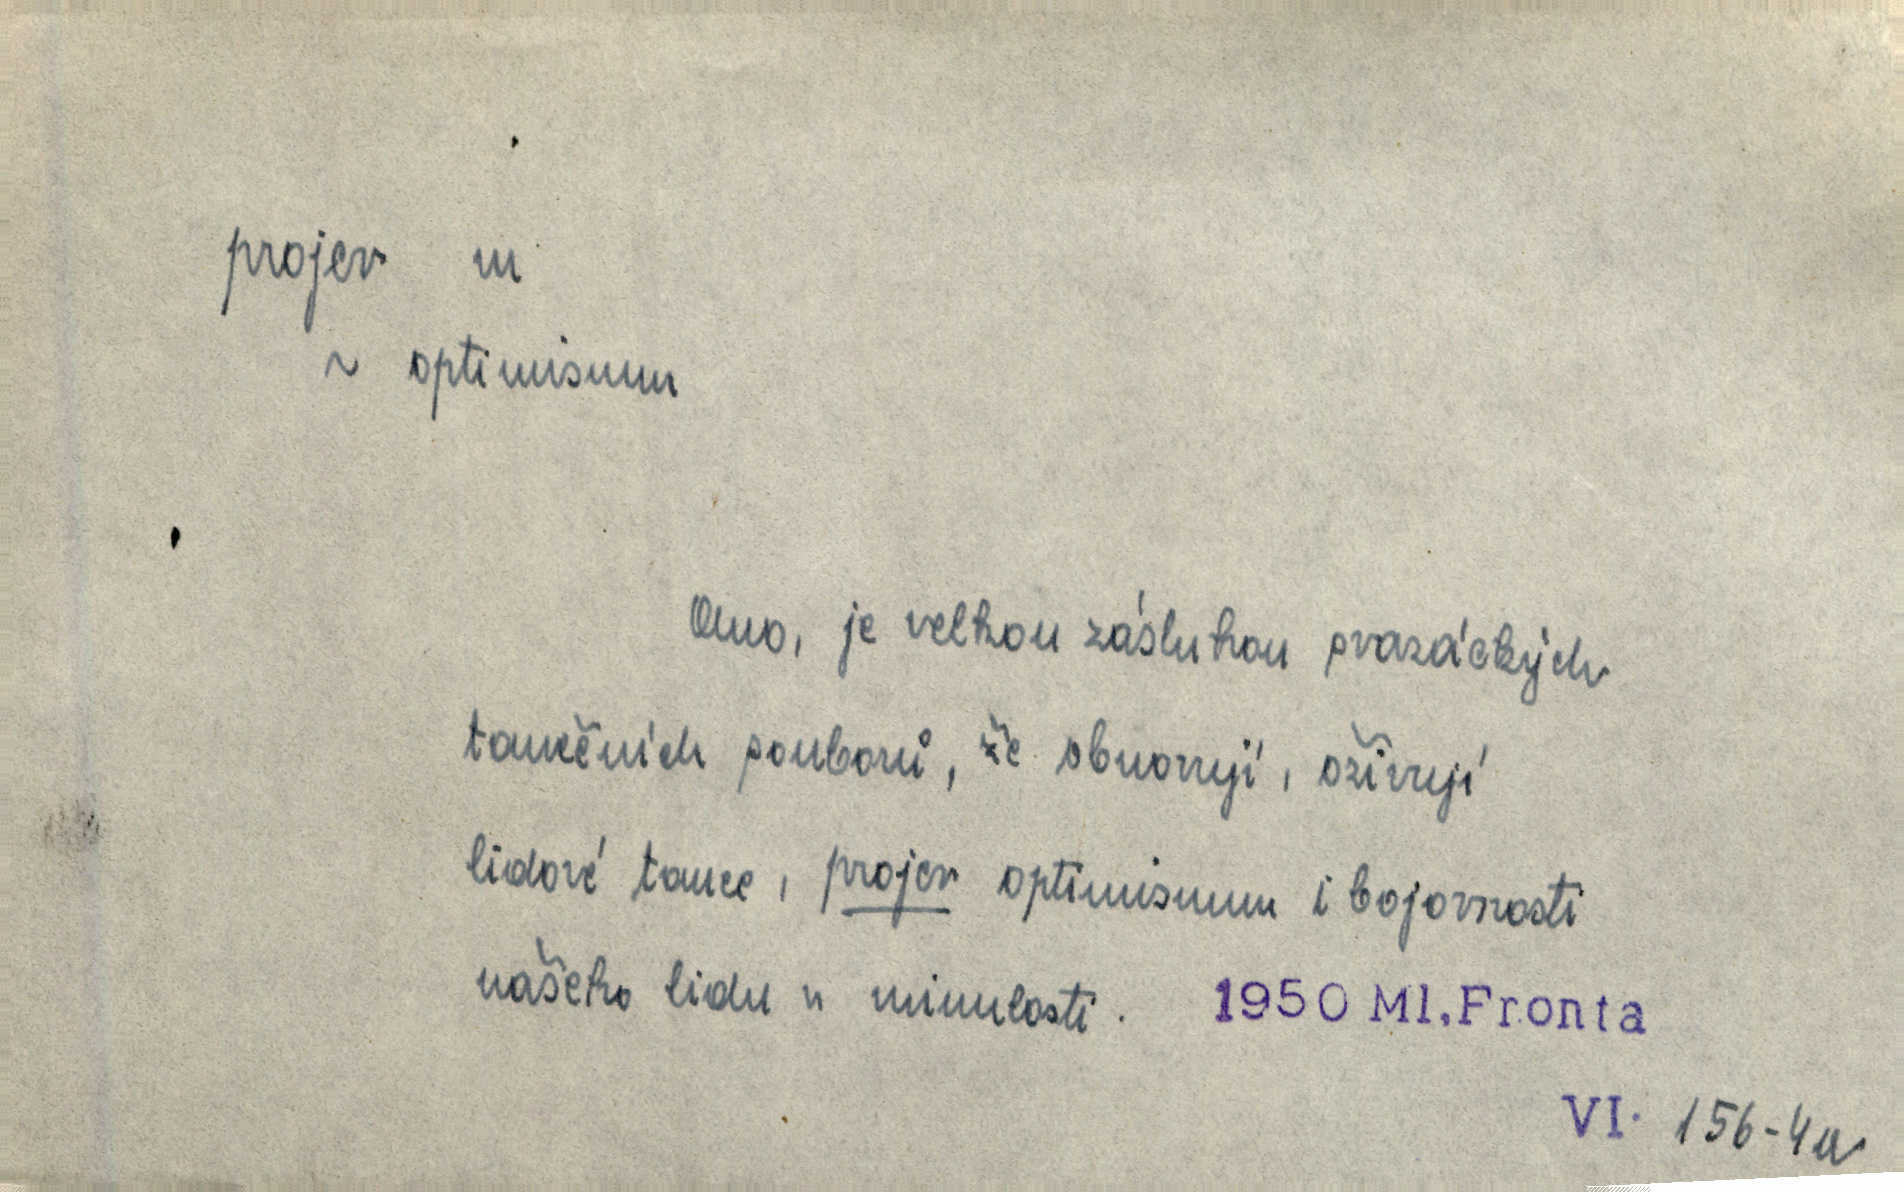 projev m
~ optimismu
Ano, je velkou zásluhou svazáckých
tanečních souborů, že obnovují, oživují
lidové tance, projev optimismu i bojovnosti
našeho lidu v minulosti. 1950 Ml,Fronta
VI. 156-4a